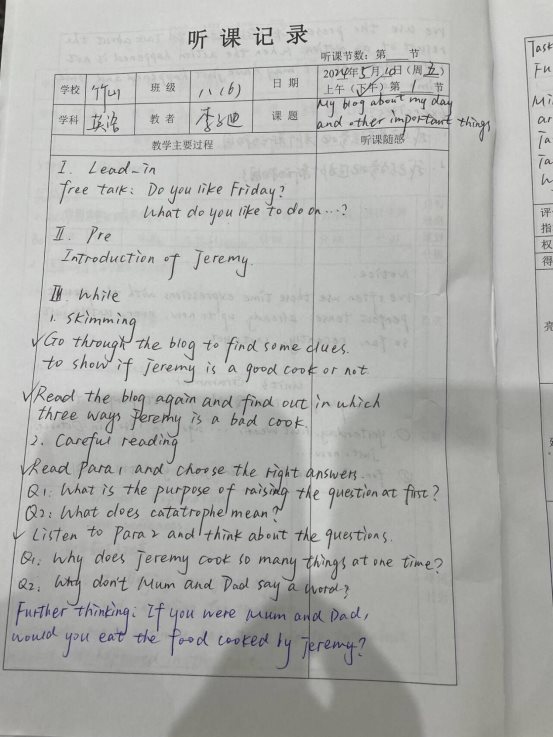 听课记录
听课节数：第 节
学校 竹山 班级 八(6) 日期 2024年5月10日（周五）
上午（下午）第1节
学科 英语 教者 课题 My blog about my day
and other important things
教学主要过程 听课随感
I. Lead-in
free talk: Do you like Friday?
What do you like to do on...?
II. Pre
Introduction of Jeremy.
III. While
1. skimming
✓Go through the blog to find some clues.
to show if Jeremy is a good cook or not.
✓Read the blog again and find out in which
three ways Jeremy is a bad cook.
2. Careful reading
✓Read Para 1 and choose the right answers.
Q1: What is the purpose of raising the question at first?
Q2: What does catatrophe mean?
✓ Listen to Para 2 and think about the questions.
Q1: Why does Jeremy cook so many things at one time?
Q2: Why don't Mum and Dad say a word?
Further thinking: If you were Mum and Dad,
would you eat the food cooked by Jeremy?